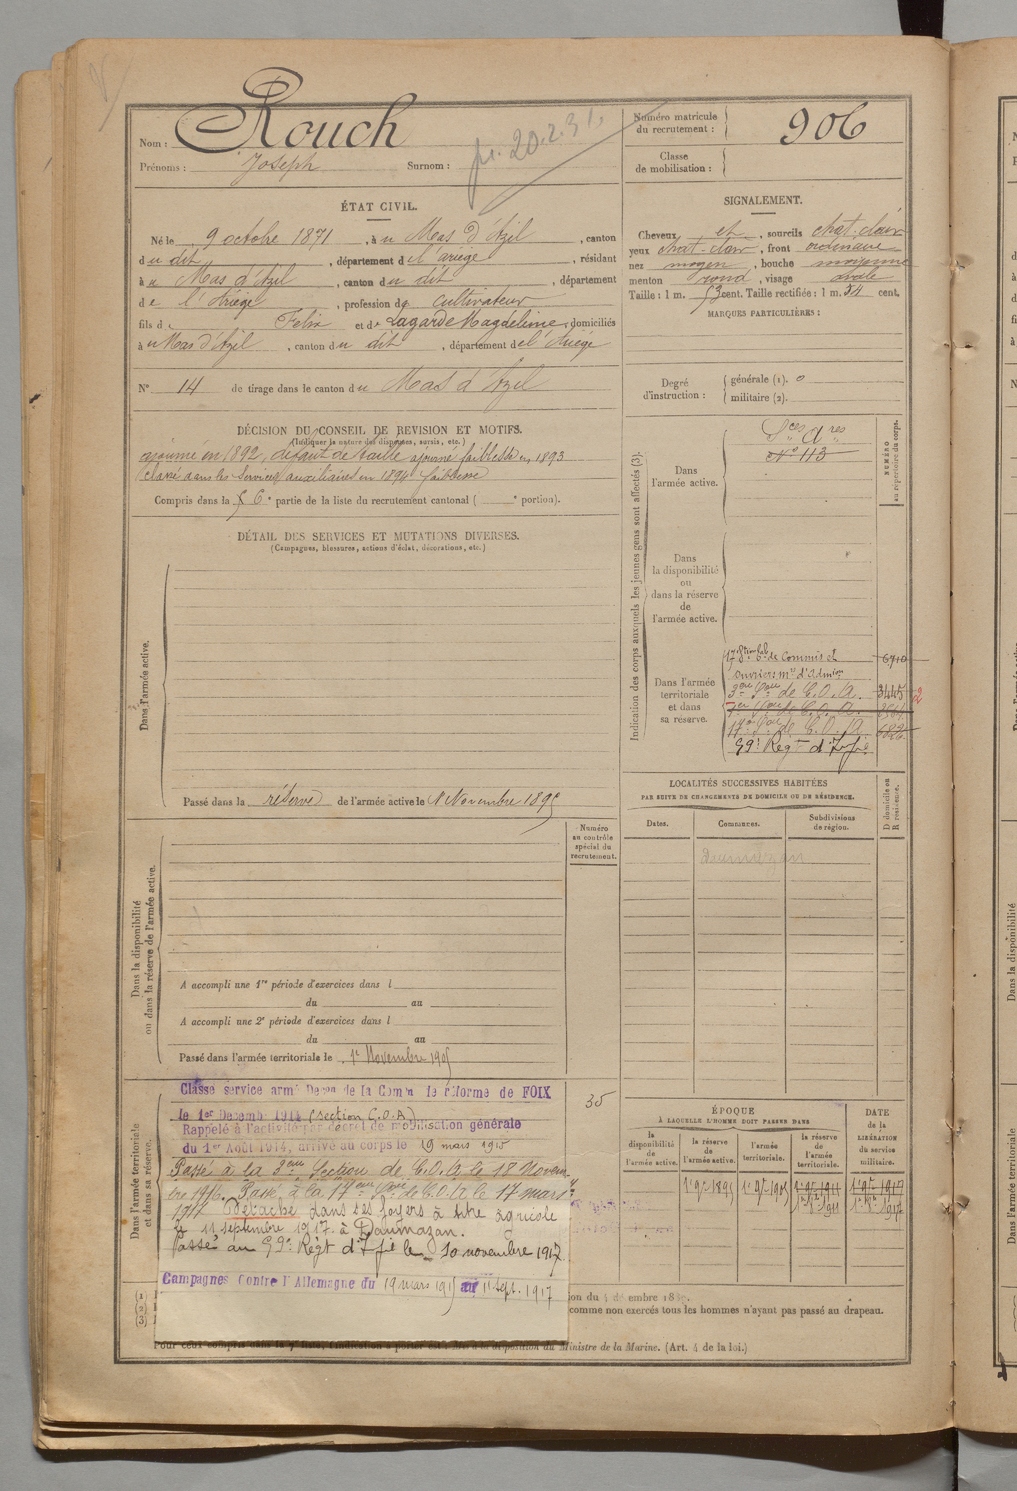 Nom : Rouch
Prénoms : Joseph Surnom :
pr. 20.2.31.
Numéro matricule
du recrutement : 906
Classe
de mobilisation :
ÉTAT CIVIL.
Né le 9 octobre 1871, à u Mas d'Azil, canton
du dit, département de l'ariège, résidant
à u Mas d'Azil, canton du dit, département
de l'Ariège, profession de cultivateur
fils de Felix et de Lagarde Magdeleine, domiciliés
à u Mas d'Azil, canton du dit, département de l'Ariège
N° 14 de tirage dans le canton du Mas d'Azil
SIGNALEMENT.
Cheveux et, sourcils chat. clair
yeux chat-clair, front ordinaire
nez moyen, bouche moyenne
menton rond, visage ovale
Taille : 1 m. 53 cent. Taille rectifiée : 1 m. 54 cent.
MARQUES PARTICULIÈRES :
Degré
d'instruction :
générale (1). 0
militaire (2).
DÉCISION DU CONSEIL DE REVISION ET MOTIFS.
(Indiquer la nature des dispenses, sursis, etc.)
ajourné en 1892, défaut de taille ajourné faiblesse en 1893
Classé dans les Services auxiliaires en 1894 faiblesse
Compris dans la 6e partie de la liste du recrutement cantonal ( e portion).
DÉTAIL DES SERVICES ET MUTATIONS DIVERSES.
(Campagnes, blessures, actions d'éclat, décorations, etc.)
Dans l'armée active.
Passé dans la réserve de l'armée active le 1 Novembre 1895
Indication des corps auxquels les jeunes gens sont affectés (3).
NUMÉRO
au répertoire du corps.
Dans
l'armée active.
Sces Ares
N° 113
Dans
la disponibilité
ou
dans la réserve
de
l'armée active.
Dans l'armée
territoriale
et dans
sa réserve.
de Commis et 6710
ouvriers mres d'Admion
3eme Son de C.O.A. 3445
de C.O.A.
17e Son de C.O.A.
59e Regt d'Infie
LOCALITÉS SUCCESSIVES HABITÉES
PAR SUITE DE CHANGEMENTS DE DOMICILE OU DE RÉSIDENCE.
D domicile ou
R résidence.
Dates. Communes. Subdivisions
de région.
Daumazan
Numéro
au contrôle
spécial du
recrutement.
35
Dans la disponibilité
ou dans la réserve de l'armée active.
A accompli une 1re période d'exercices dans l
du au
A accompli une 2e période d'exercices dans l
du au
Passé dans l'armée territoriale le 1er Novembre 1905
Dans l'armée territoriale
et dans sa réserve.
Classé service armé de la réforme de FOIX
le 1er Décemb 1914 (section C.O.A)
Rappelé à l'activité par décret de mobilisation générale
du 1er Août 1914, arrivé au corps le 19 mars 1915
Passé à la 3eme Section de C.O.A. le 18 Novem-
bre 1916. Passé à la 17eme Son de C.O.A le 17 mars
1917 Détaché dans ses foyers à titre agricole
le 11 septembre 1917 à Daumazan.
Passé au 59e Régt d'Infie le 10 novembre 1917.
Campagnes contre l'Allemagne du 19 mars 1915 au 11 Sept. 1917
ÉPOQUE
À LAQUELLE L'HOMME DOIT PASSER DANS
la
disponibilité
de
l'armée active.
la réserve
de
l'armée active.
l'armée
territoriale.
la réserve
de
l'armée
territoriale.
DATE
de la
LIBÉRATION
du service
militaire.
1er 9bre 1895 1er 9bre 1905 1er 9bre 1911 1er 9bre 1917
comme non exercés tous les hommes n'ayant pas passé au drapeau.
Ministre de la Marine. (Art. 4 de la loi.)